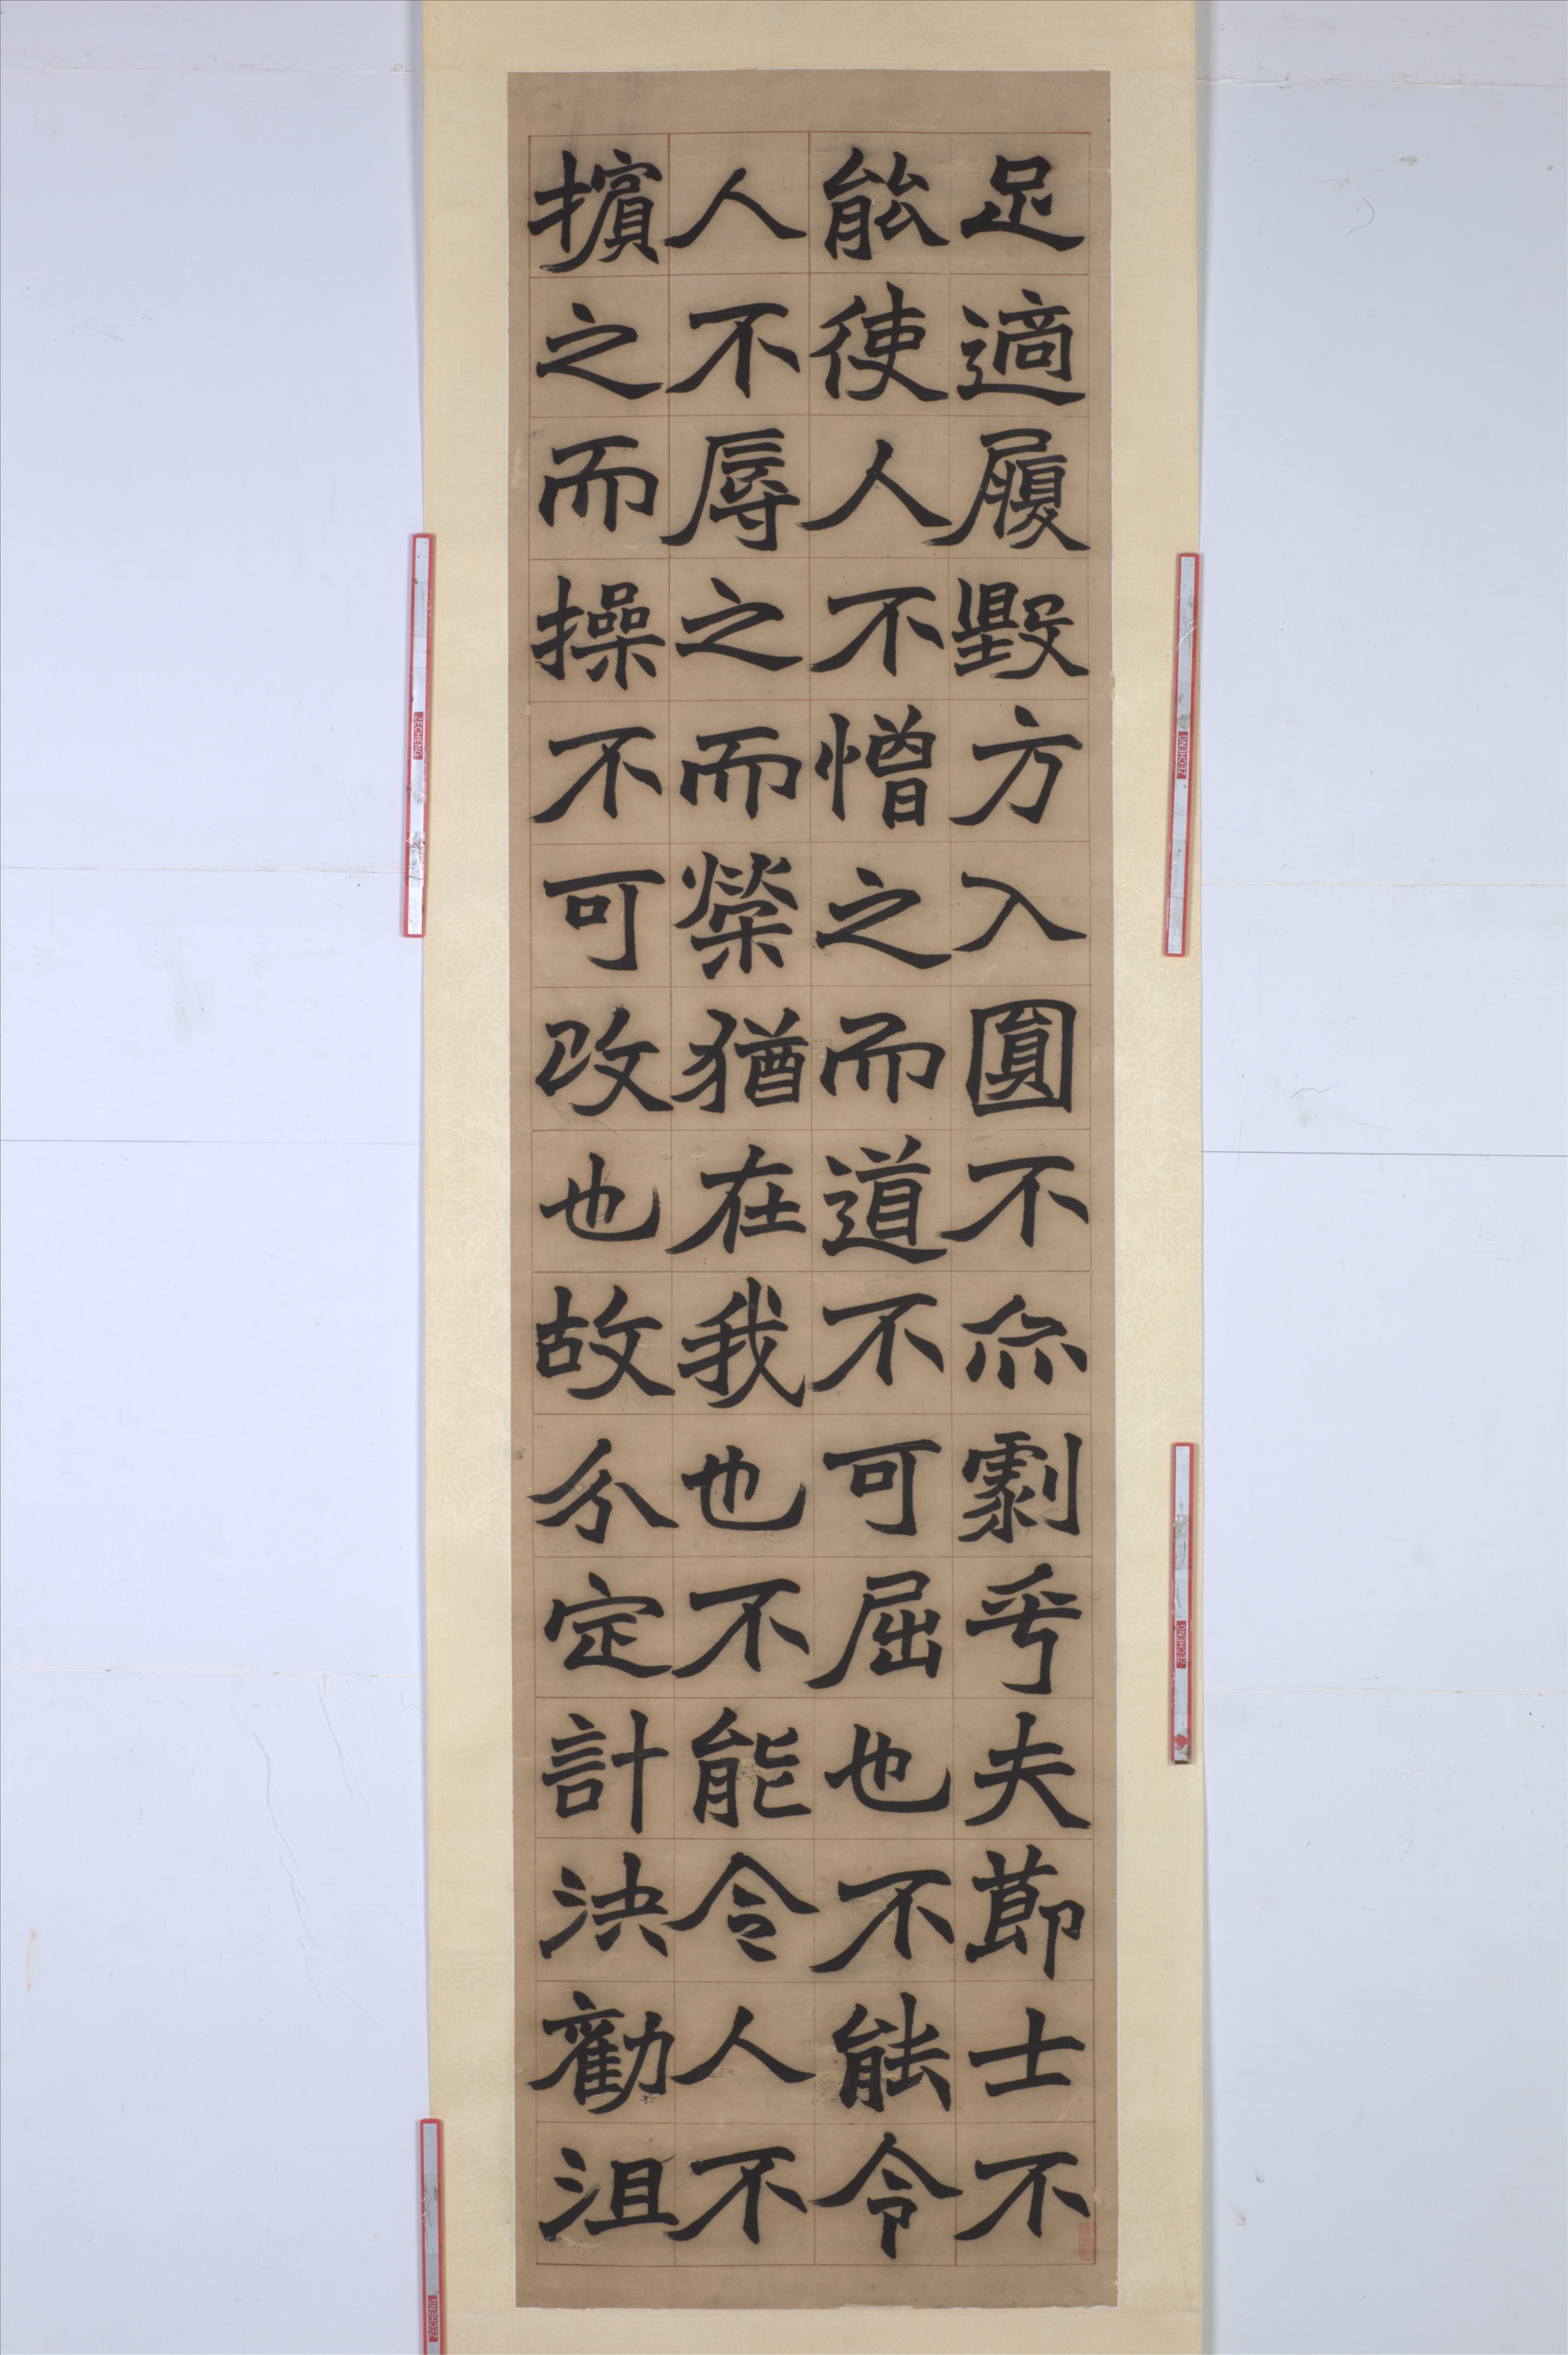 足適履毀方入圓不尒劇乎夫莭士不
能使人不憎之而道不可屈也不能令
人不辱之而榮猶在我也不能令人不
擯之而操不可改也故分定計決勸沮
ZECHENG
ZECHENG
ZECHENG
ZECHENG